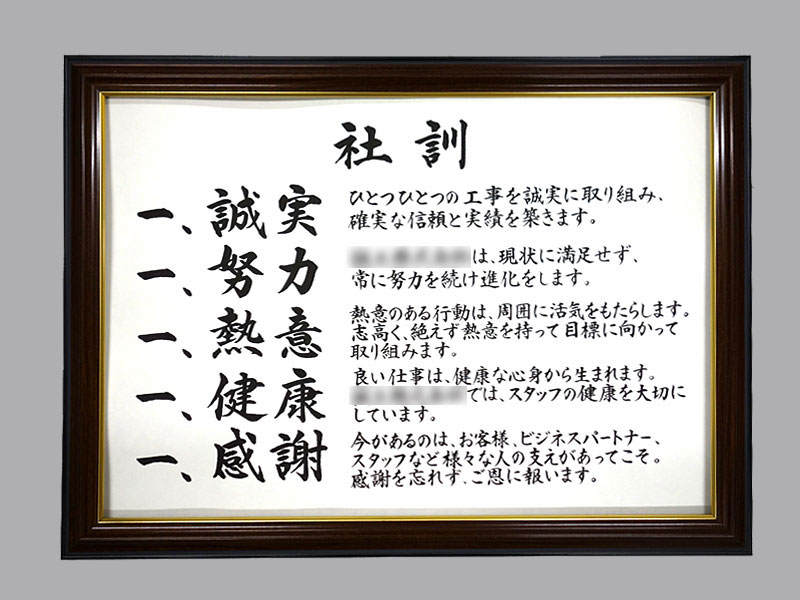 社訓
一、誠実
ひとつひとつの工事を誠実に取り組み、
確実な信頼と実績を築きます。
一、努力
は、現状に満足せず、
常に努力を続け進化をします。
一、熱意
熱意のある行動は、周囲に活気をもたらします。
志高く、絶えず熱意を持って目標に向かって
取り組みます。
一、健康
良い仕事は、健康な心身から生まれます。
では、スタッフの健康を大切に
しています。
一、感謝
今があるのは、お客様、ビジネスパートナー、
スタッフなど様々な人の支えがあってこそ。
感謝を忘れず、ご恩に報います。